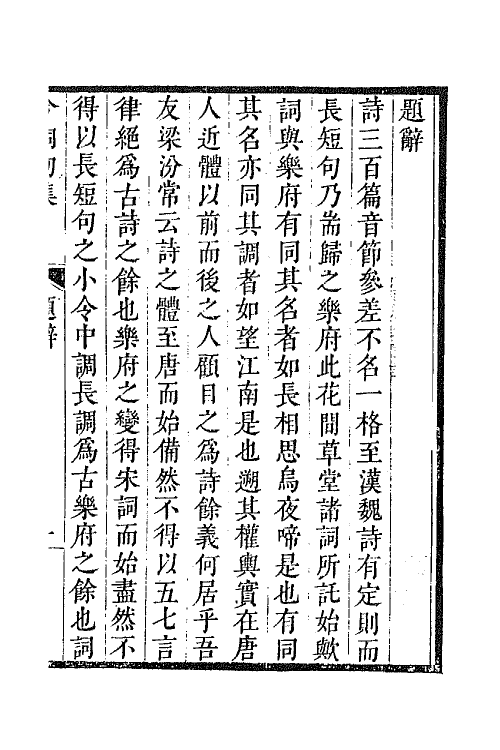 題辭
詩三百篇音節參差不名一格至漢魏詩有定則而
長短句乃耑歸之樂府此花間草堂諸詞所託始歟
詞與樂府有同其名者如長相思烏夜啼是也有同
其名亦同其調者如望江南是也遡其權輿實在唐
人近體以前而後之人顧目之為詩餘義何居乎吾
友梁汾常云詩之體至唐而始備然不得以五七言
律絕為古詩之餘也樂府之變得宋詞而始盡然不
得以長短句之小令中調長調為古樂府之餘也詞
今詞初集
題辭
一